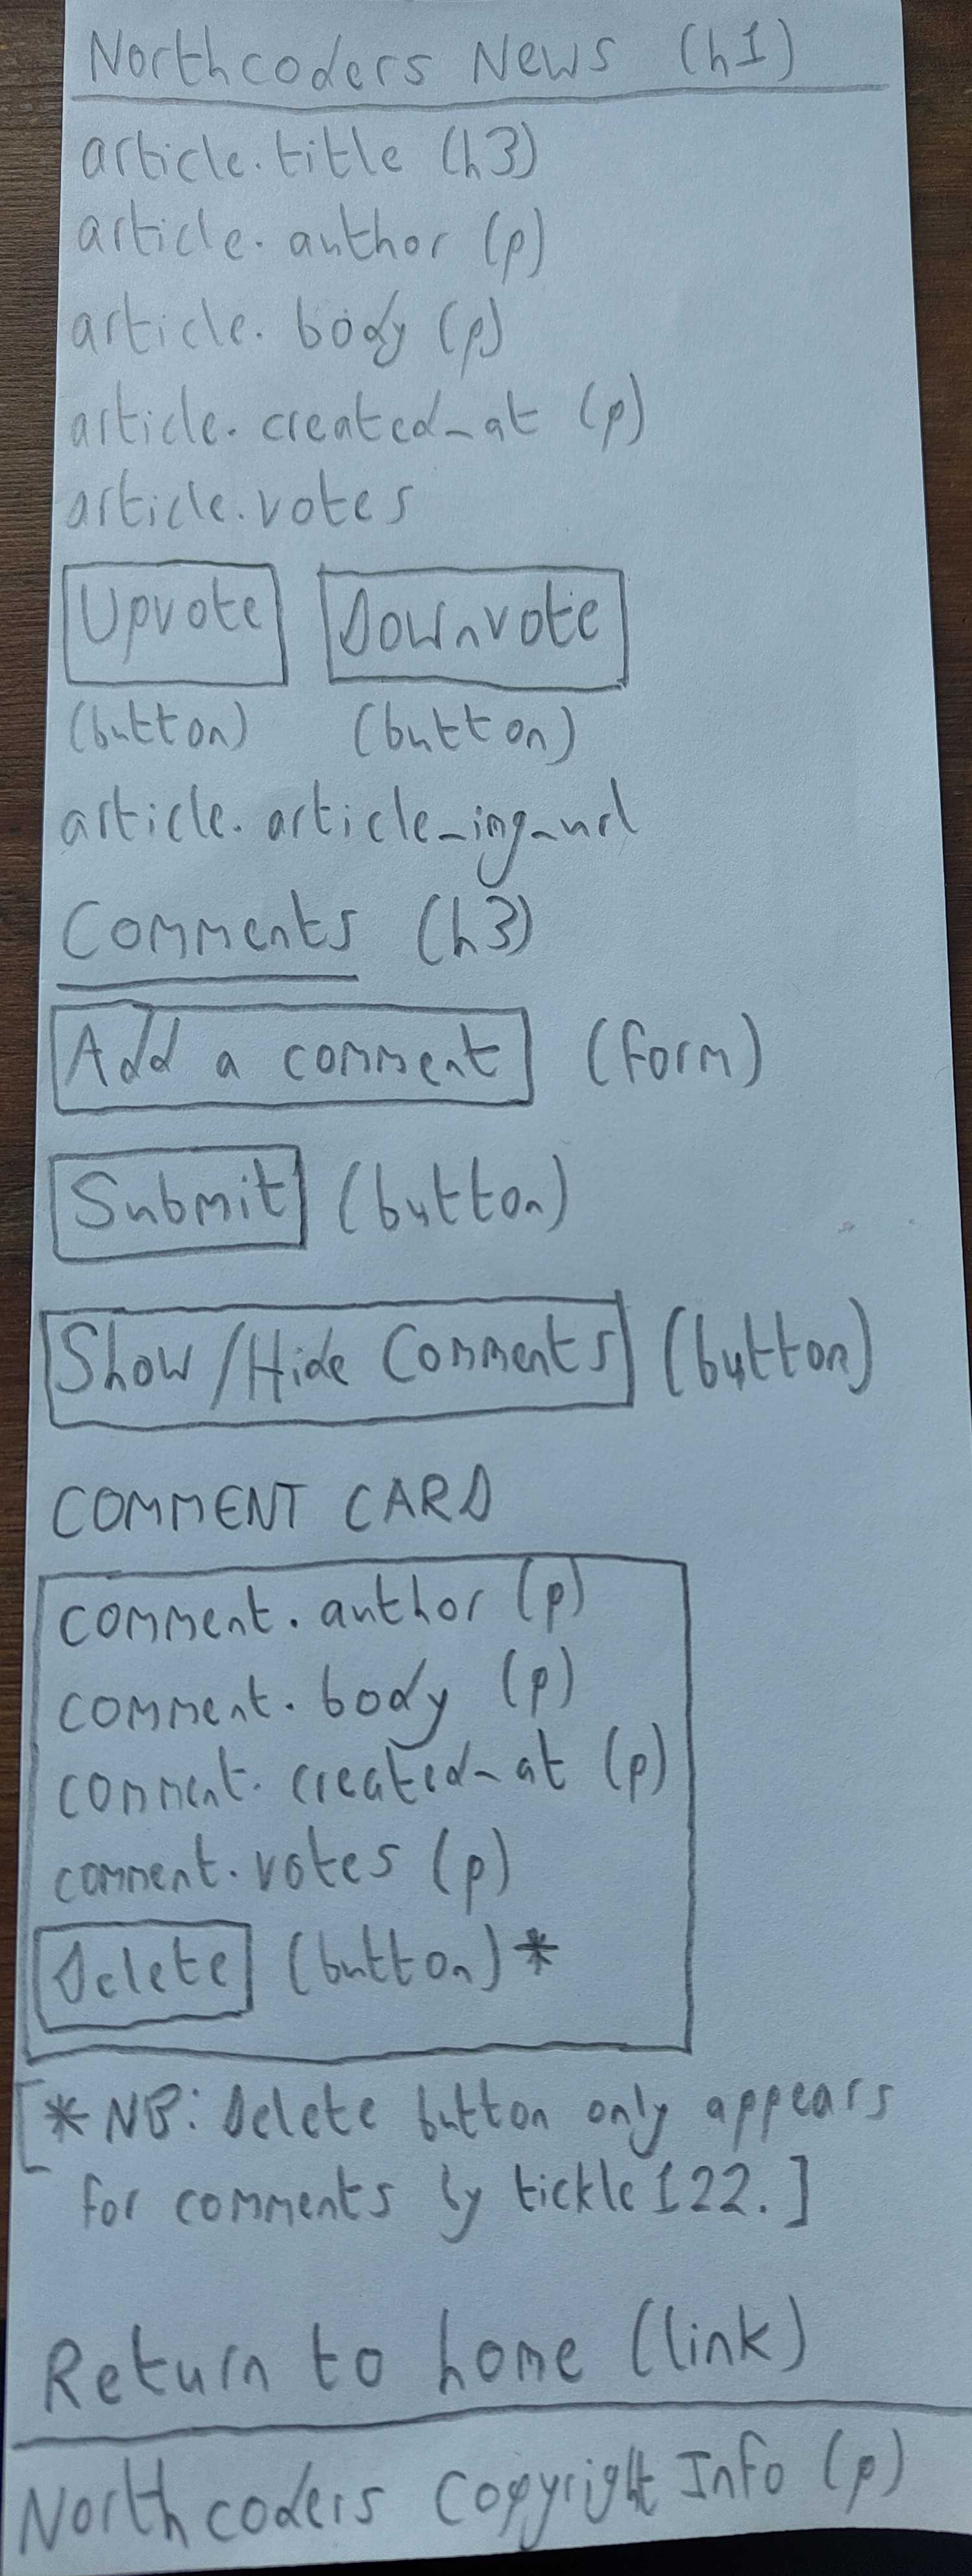 Northcoders News (h1)
article.title (h3)
article.author (p)
article.body (p)
article.created_at (p)
article.votes
Upvote Downvote
(button) (button)
article.article_img_url
Comments (h3)
Add a comment (form)
Submit (button)
Show/Hide Comments (button)
COMMENT CARD
comment.author (p)
comment.body (p)
comment.created_at (p)
comment.votes (p)
Delete (button)*
[*NB: Delete button only appears
for comments by tickle122.]
Return to home (link)
Northcoders Copyright Info (p)